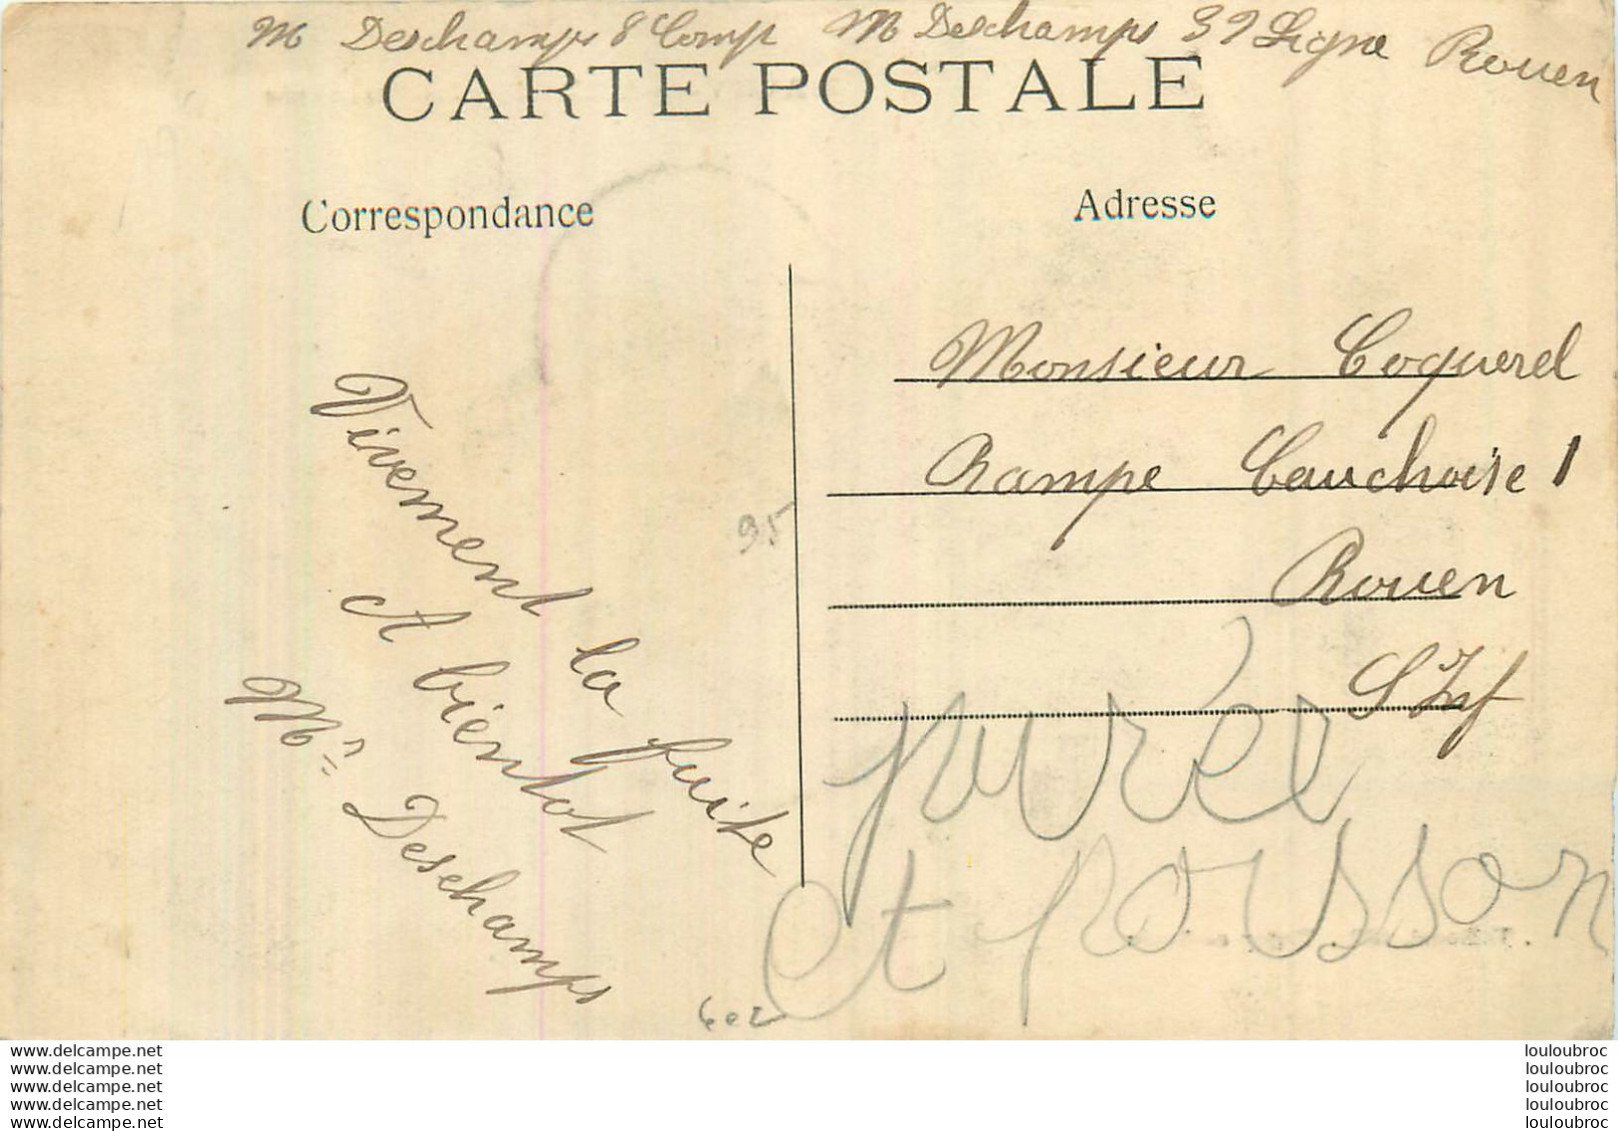 M Deschamps 8 Comp M Deschamps 39 Ligne Rouen
CARTE POSTALE
Correspondance
Adresse
Vivement la fuite
A bientot
Mr Deschamps
Monsieur Coquerel
Rampe Cauchoise 1
Rouen
S Inf
95
purée
et poisson
602
www.delcampe.net
www.delcampe.net
www.delcampe.net
www.delcampe.net
www.delcampe.net
louloubroc
louloubroc
louloubroc
louloubroc
louloubroc